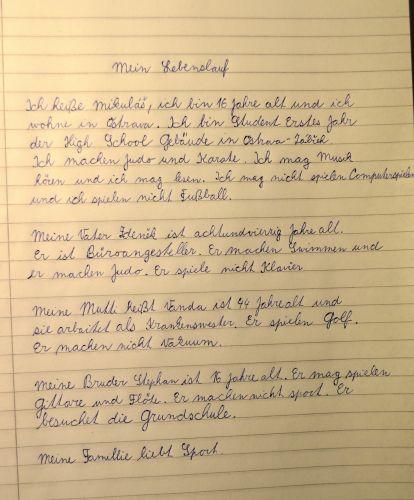 Mein Lebenslauf
Ich heiße Mikuláš, ich bin 16 Jahre alt und ich
wohne in Ostrava. Ich bin Student Erstes Jahr
der High School Gebäude in Ostrava-Zábřeh.
Ich machen Judo und Karate. Ich mag Musik
hören und ich mag lesen. Ich mag nicht spielen Computerspielen
und ich spielen nicht Fußball.
Meine Vater Zdeněk ist achtundvierzig Jahre alt.
Er ist Büroangesteller. Er machen Swimmen und
er machen Judo. Er spiele nicht Klavier.
Meine Mutti heißt Vanda ist 44 Jahre alt und
sie arbeitet als Krankenswester. Er spielen Golf.
Er machen nicht Vakuum.
Meine Bruder Stephan ist 16 Jahre alt. Er mag spielen
Gittare und Flöte. Er machen nicht sport. Er
besuchet die Grundschule.
Meine Famillie liebt Sport.